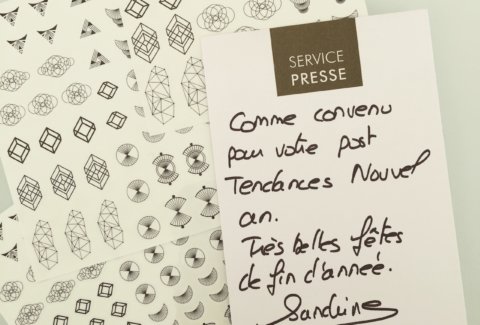 SERVICE
PRESSE
Comme convenu
pour votre post
Tendances Nouvel
an.
Très belles fêtes
de fin d'année.
Sandrine